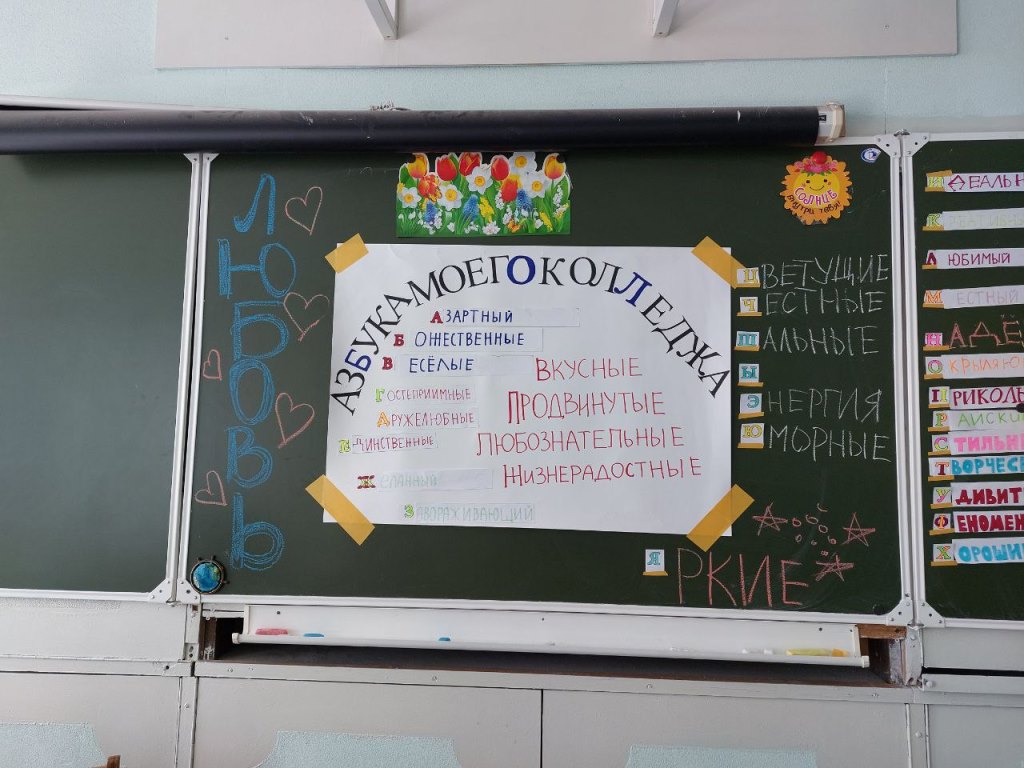 ЛЮБОВЬ
АЗБУКА МОЕГО КОЛЛЕДЖА
АЗАРТНЫЙ
БОЖЕСТВЕННЫЕ
ВЕСЁЛЫЕ
ГОСТЕПРИИМНЫЕ
ДРУЖЕЛЮБНЫЕ
ЕДИНСТВЕННЫЕ
ЖЕЛАННЫЙ
ЗАВОРАЖИВАЮЩИЙ
ВКУСНЫЕ
ПРОДВИНУТЫЕ
ЛЮБОЗНАТЕЛЬНЫЕ
ЖИЗНЕРАДОСТНЫЕ
СОЛНЦЕ
внутри тебя!
ЦВЕТУЩИЕ
ЧЕСТНЫЕ
ШАЛЬНЫЕ
Ы
ЭНЕРГИЯ
ЮМОРНЫЕ
ЯРКИЕ
ИДЕАЛЬН
ЛЮБИМЫЙ
МЕСТНЫЙ
НАДЁ
ОКРЫЛЯЮ
ПРИКОЛЬ
РАЙСКИ
СТИЛЬН
ТВОРЧЕС
УДИВИТ
ФЕНОМЕН
ХОРОШИ